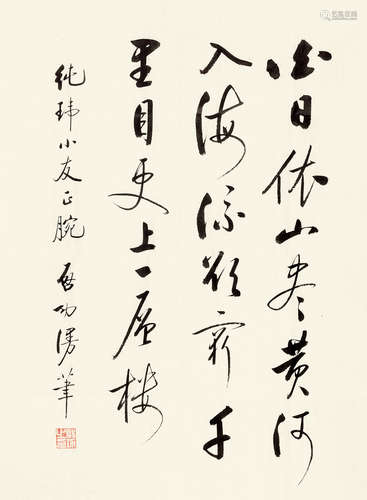 白日依山尽黄河
入海流欲穷千
里目更上一层楼
纯玮小友正腕 启功漫笔